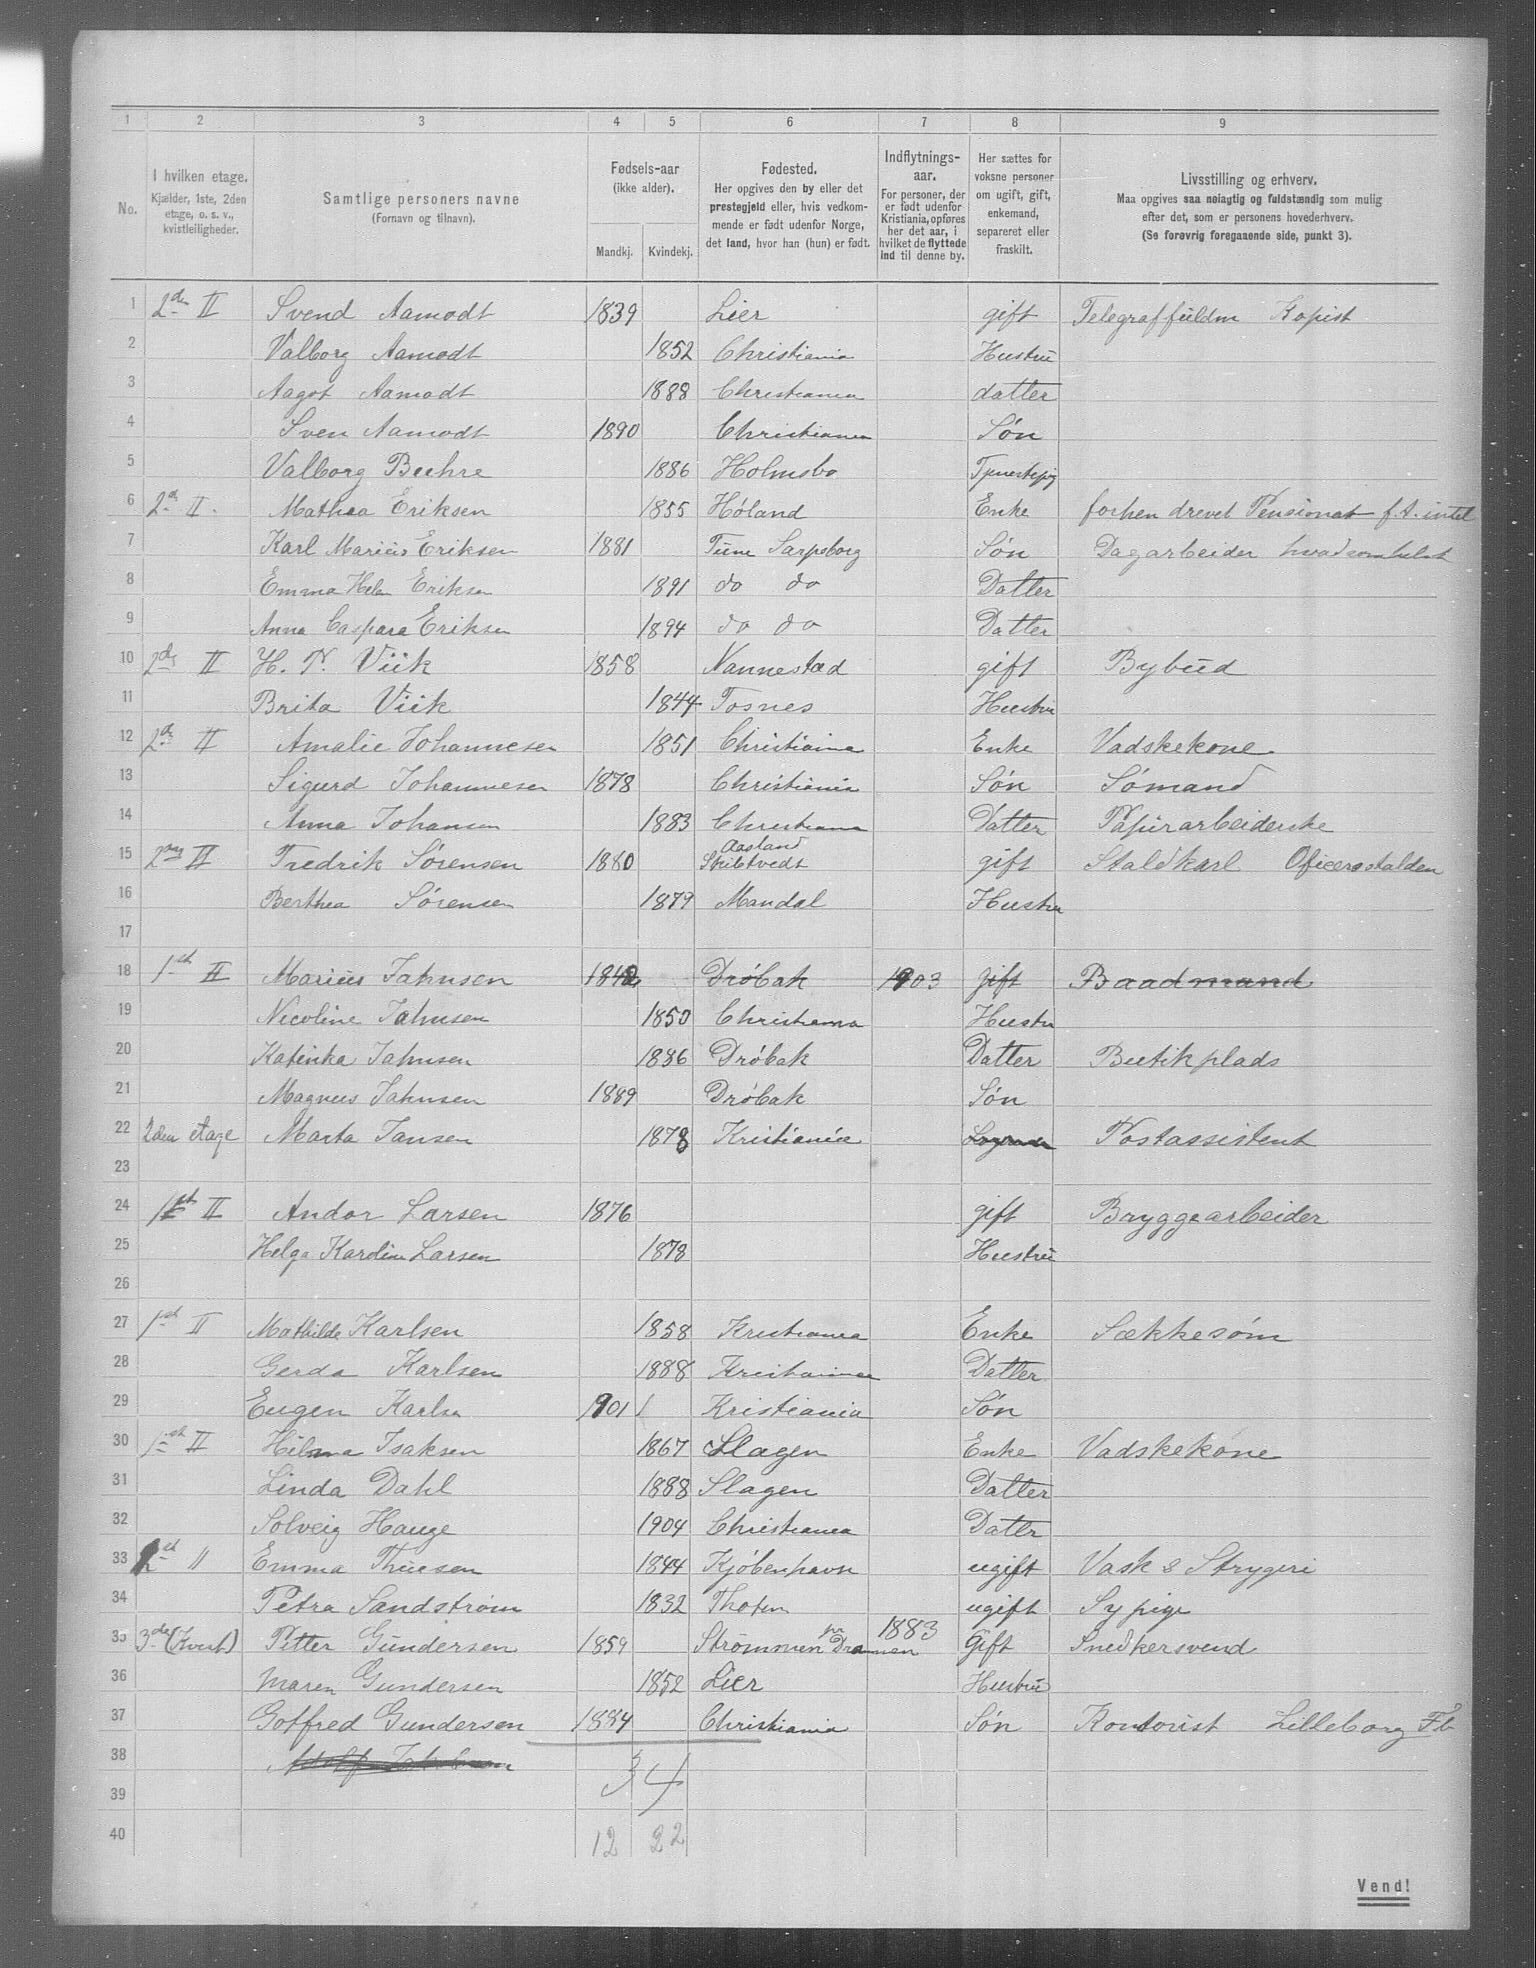 1 2 3 4 5 6 7 8 9
No.
I hvilken etage.
Kjælder, 1ste, 2den
etage, o. s. v.,
kvistleiligheder.
Samtlige personers navne
(Fornavn og tilnavn).
Fødsels-aar
(ikke alder).
Mandkj. Kvindekj.
Fødested.
Her opgives den by eller det
prestegjeld eller, hvis vedkom-
mende er født udenfor Norge,
det land, hvor han (hun) er født.
Indflytnings-
aar.
For personer, der
er født udenfor
Kristiania, opføres
her det aar, i
hvilket de flyttede
ind til denne by.
Her sættes for
voksne personer
om ugift, gift,
enkemand,
separeret eller
fraskilt.
Livsstilling og erhverv.
Maa opgives saa nøiagtig og fuldstændig som mulig
efter det, som er personens hovederhverv.
(Se forøvrig foregaaende side, punkt 3).
1 2den II Svend Aamodt 1839 Lier gift Telegraffuldm Kopist
2 Valborg Aamodt 1852 Christiania Hustru
3 Aagot Aamodt 1888 Christiania datter
4 Sven Aamodt 1890 Christiania Søn
5 Valborg Buhre 1886 Holmsbo
6 2d II. Mathea Eriksen 1855 Høland Enke forhen drevet Pensionat f. t. intet
7 Karl Marius Eriksen 1881 Tune Sarpsborg Søn Dagarbeider hvadsomhelst
8 Emma Helen Eriksen 1891 do do Datter
9 Anna Caspara Eriksen 1894 do do Datter
10 2de II H. N. Viik 1858 Nannestad gift Bybud
11 Brita Viik 1844 Fosnes Hustru
12 2de II Amalie Johannesen 1851 Christiania Enke Vadskekone
13 Sigurd Johannesen 1878 Christiania Søn Sømand
14 Anna Johansen 1883 Christiania Datter Papirarbeiderske
Aasland
15 2den II Fredrik Sørensen 1880 Skibtvedt gift Staldkarl Oficersstalden
16 Berthea Sørensen 1879 Mandal Hustru
17
18 1st II Marius Jahnsen 1842 Drøbak 1903 gift Baadmand
19 Nicoline Jahnsen 1850 Christiania Hustru
20 Katinka Jahnsen 1886 Drøbak Datter Butikplads
21 Magnus Jahnsen 1889 Drøbak Søn
22 2den etage Marta Jansen 1878 Kristiania Postassistent
23
24 1st II Andor Larsen 1876 gift Bryggearbeider
25 Helga Karoline Larsen 1878 Hustru
26
27 1st II Mathilde Karlsen 1858 Kristiania Enke Sækkesøm
28 Gerda Karlsen 1888 Kristiania Datter
29 Eugen Karlsen 1901 Kristiania Søn
30 1st II Hilma Isaksen 1867 Slagen Enke Vadskekone
31 Linda Dahl 1888 Slagen Datter
32 Solveig Hauge 1904 Christiania Datter
33 II Emma Thuesen 1844 Kjøbenhavn ugift Vask & Strygeri
34 Petra Sandstrøm 1832 Thoten ugift Sypige
35 3de (Kvist) Petter Gundersen 1859 Strømmen pr Drammen 1883 Gift Snedkersvend
36 Maren Gundersen 1852 Lier Hustru
37 Gotfred Gundersen 1884 Christiania Søn Kontorist Lilleborg Fb
38
39 34
40 12 22
Vend!